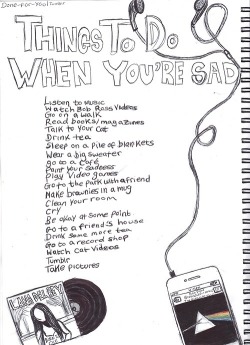 Done-for-you|Tumblr
THINGS TO DO
WHEN YOU'RE SAD
Listen to music
Watch Bob Ross Videos
Go on a walk
Read books/magazines
Talk to Your Cat
Drink tea
Sleep on a Pile of blankets
Wear a big sweater
go to a café
Paint your sadness
Play Video games
Go to the Park with a friend
Make brownies in a mug
Clean your room
Cry
Be okay at some point
Go to a friend's house
Drink some more tea
Go to a record shop
Watch Cat Videos
Tumblr
Take pictures
LANA DEL REY